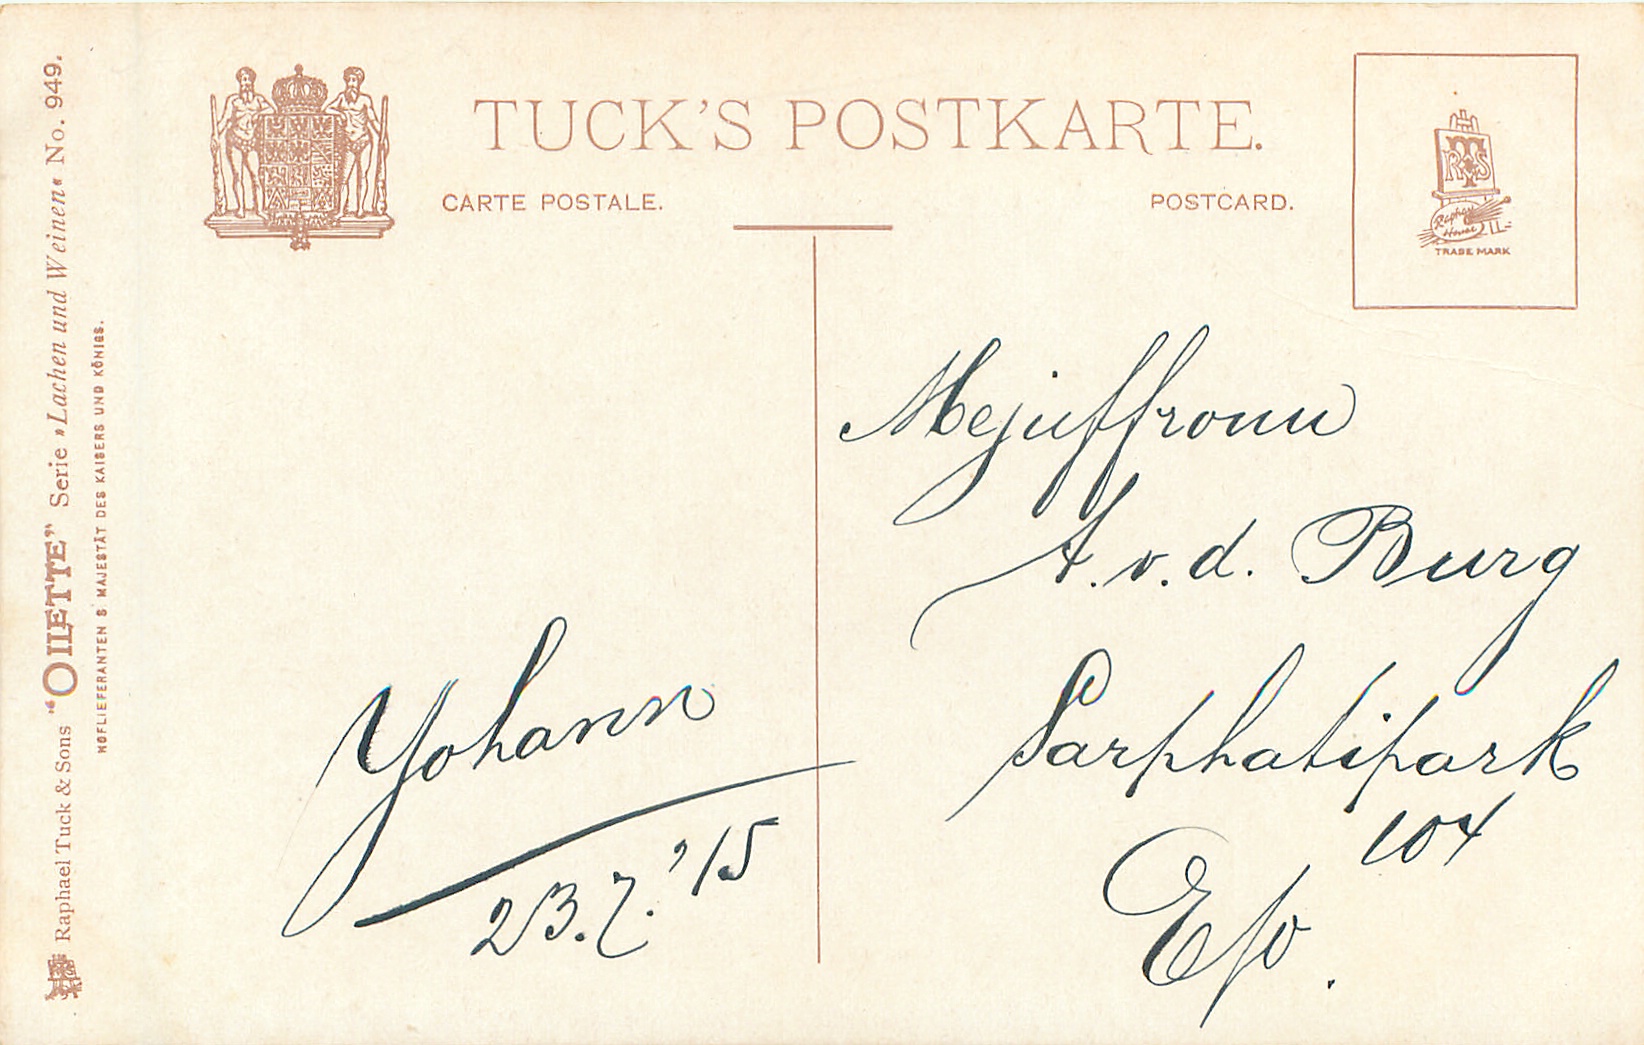 TUCK'S POSTKARTE.
CARTE POSTALE.
POSTCARD.
RTS
Raphael
House
TRADE MARK
Raphael Tuck & Sons "OILETTE" Serie »Lachen und Weinen« No. 949.
HOFLIEFERANTEN Sr MAJESTÄT DES KAISERS UND KÖNIGS.
Mejuffrouw
A. v. d. Burg
Sarphatipark
104
E/o.
Johann
23.7.'15